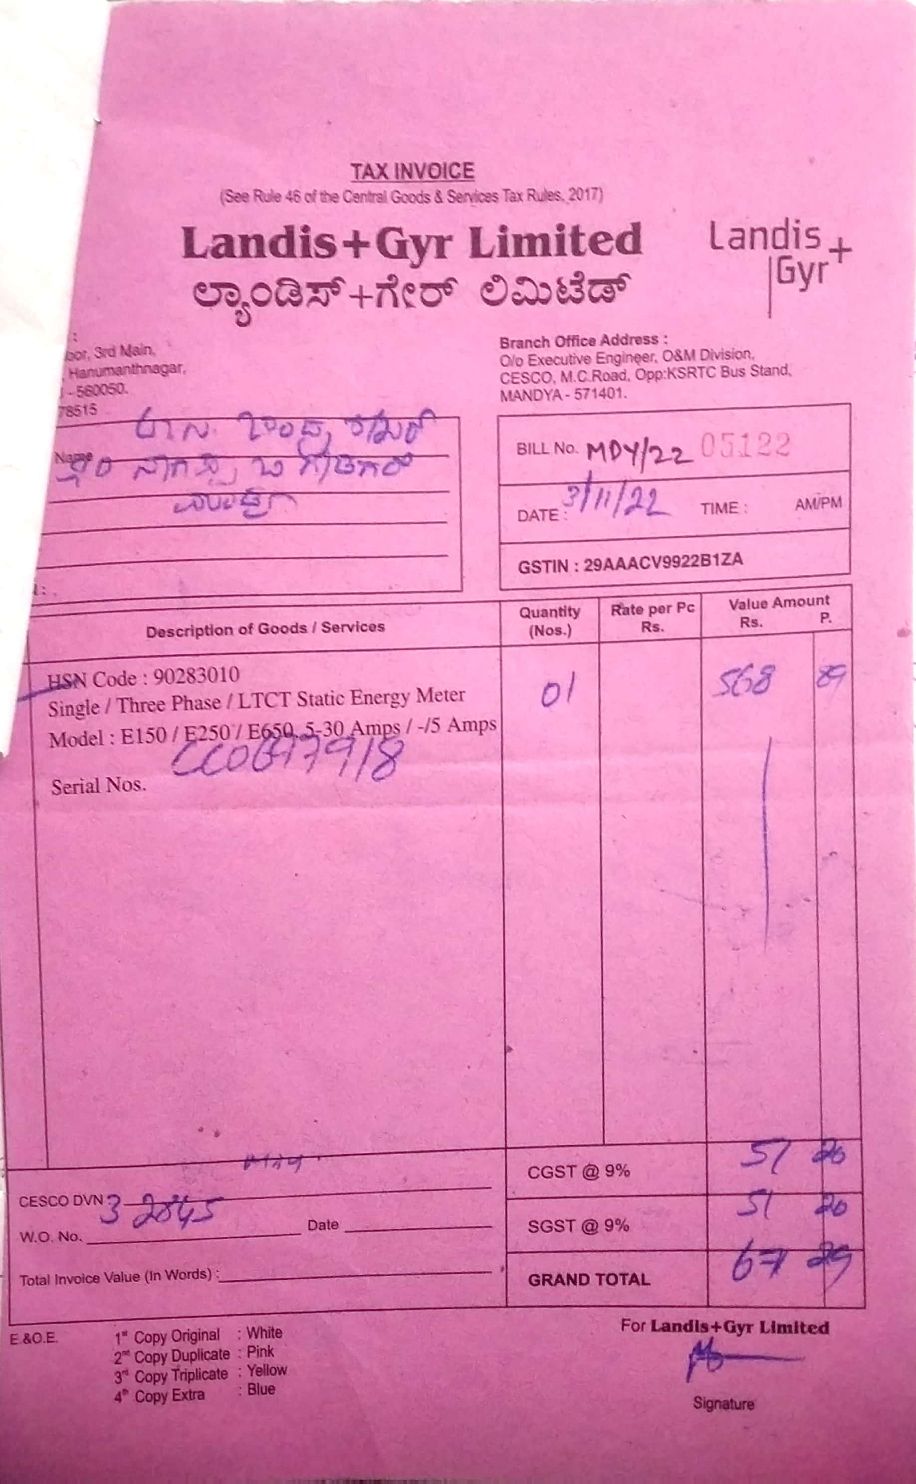 TAX INVOICE
(See Rule 46 of the Central Goods & Services Tax Rules, 2017)
Landis+Gyr Limited
ಲ್ಯಾಂಡಿಸ್+ಗೇರ್ ಲಿಮಿಟೆಡ್
Landis
Gyr+
3rd Main,
Hanumanthnagar,
- 560050.
78515
Branch Office Address :
O/o Executive Engineer, O&M Division,
CESCO, M.C.Road, Opp:KSRTC Bus Stand,
MANDYA - 571401.
Name
BILL No. MDY/22 05122
DATE : 3/11/22 TIME : AM/PM
GSTIN : 29AAACV9922B1ZA
Description of Goods / Services Quantity (Nos.) Rate per Pc Rs. Value Amount Rs. P.
HSN Code : 90283010
Single / Three Phase / LTCT Static Energy Meter 01 568 89
Model : E150 / E250 / E650, 5-30 Amps / -/5 Amps
Serial Nos.
CGST @ 9% 51 20
CESCO DVN
SGST @ 9% 51 20
W.O. No. 3 2845 Date
Total Invoice Value (In Words) :
GRAND TOTAL 671 29
E.&O.E.
1st Copy Original : White
2nd Copy Duplicate : Pink
3rd Copy Triplicate : Yellow
4th Copy Extra : Blue
For Landis+Gyr Limited
Signature